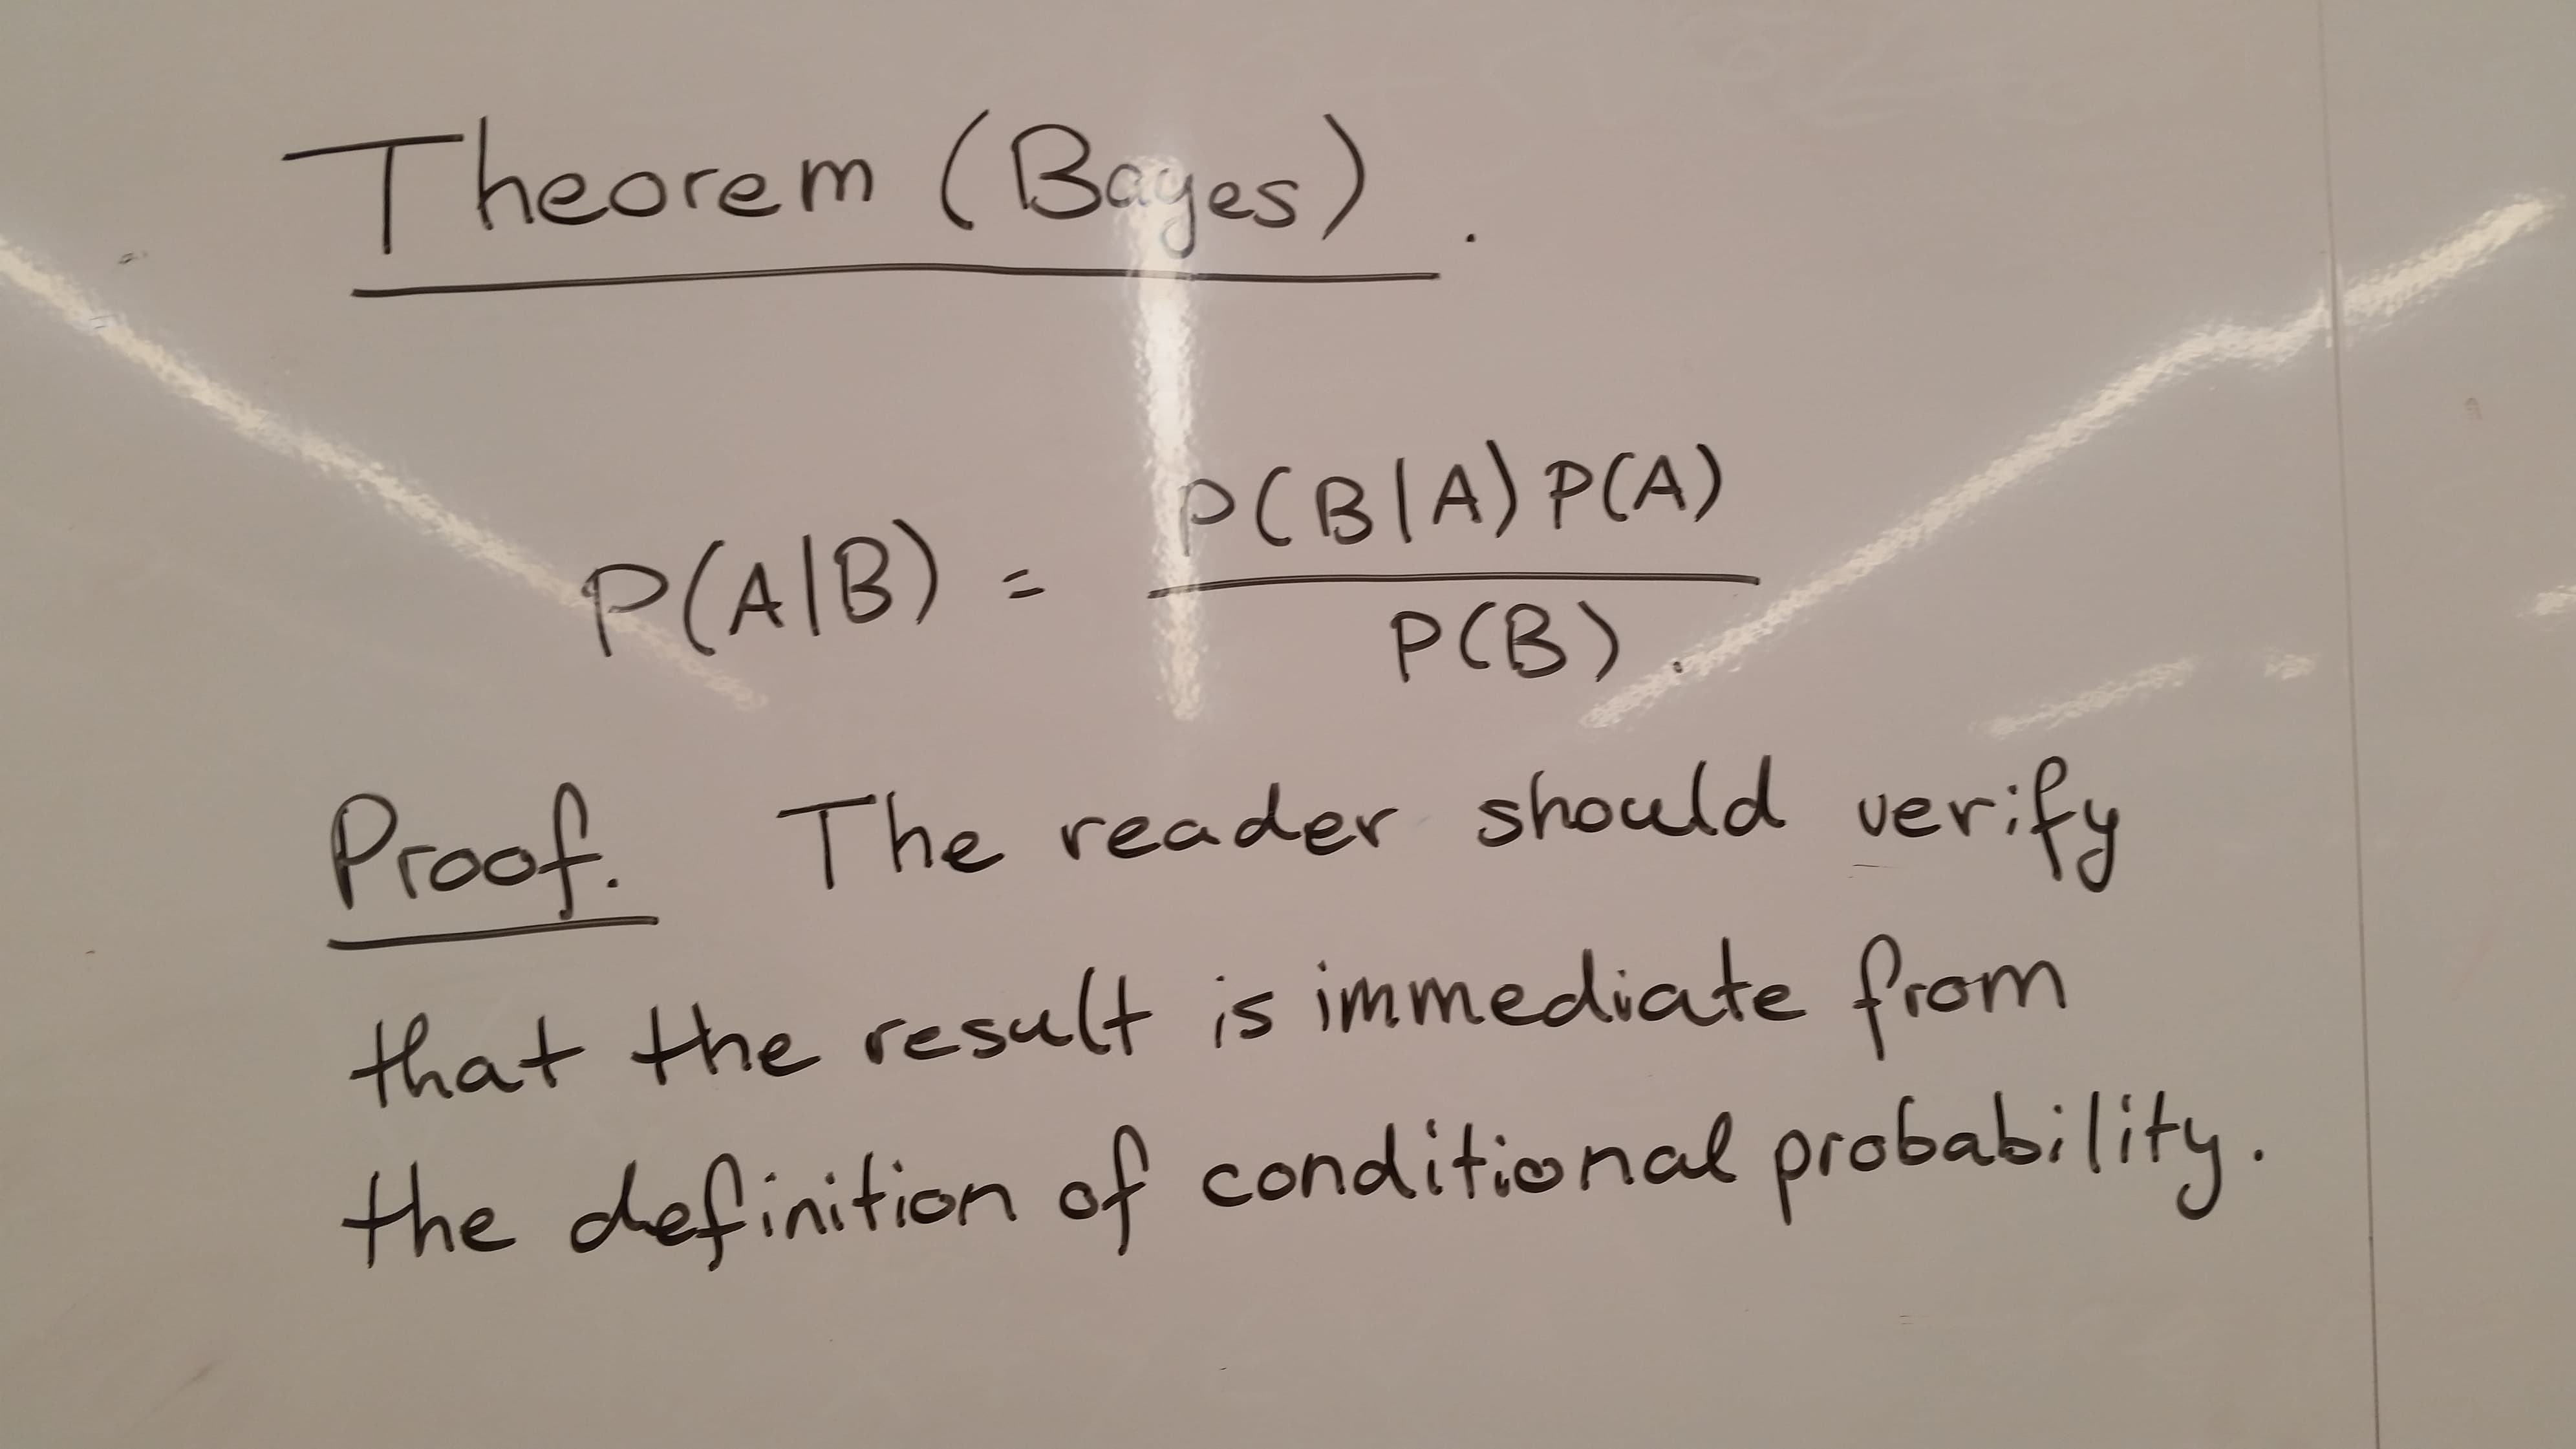 Theorem (Bayes).
P(A|B) = P(B|A) P(A)
P(B).
Proof. The reader should verify
that the result is immediate from
the definition of conditional probability.